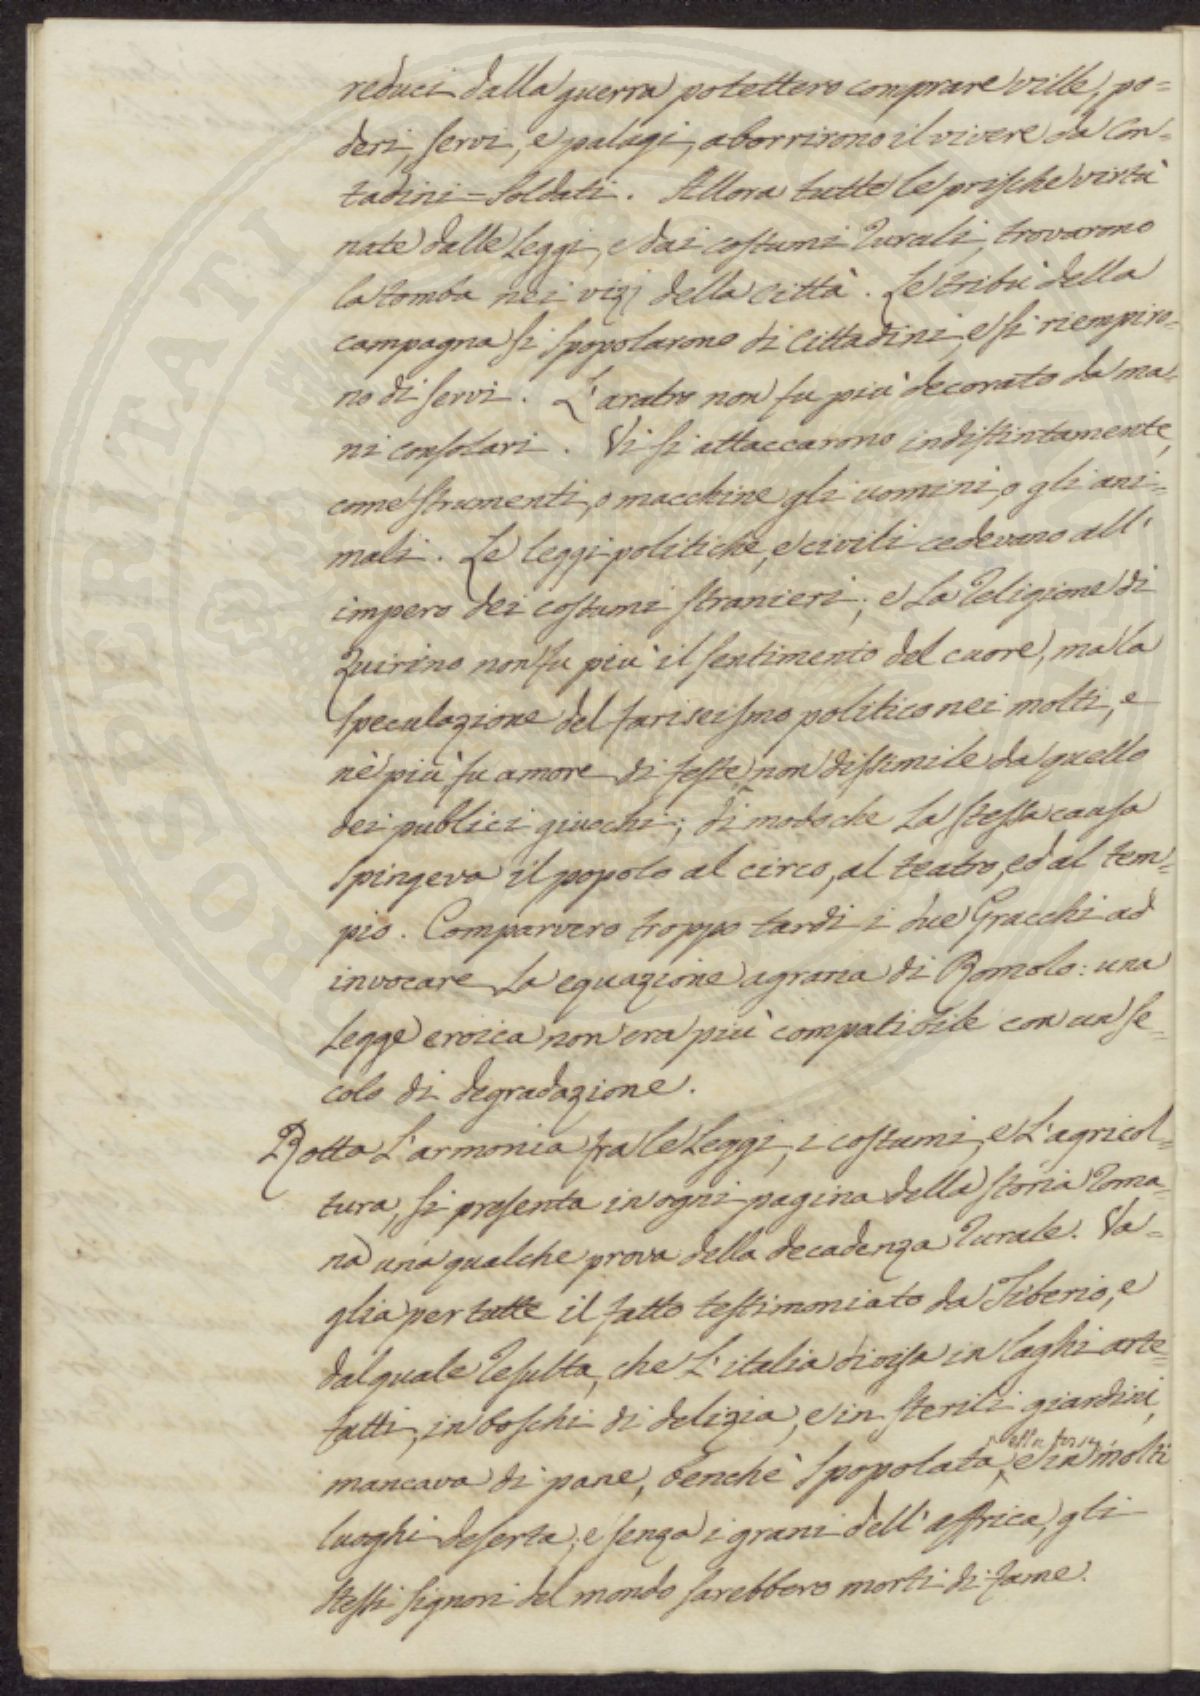 reduci dalla guerra potettero comprare ville, po=
deri, servi, e palagi, aborrirono il vivere da Con=
tadini=Soldati. Allora tutte le prische virtù
nate dalle Leggi, e dai costumi rurali, trovarono
la tomba nei vizj della Città. Le tribù della
campagna si spopolarono di Cittadini, e si riempiro=
no di servi. L'aratro non fu più decorato da ma=
ni consolari. Vi si attaccarono indistintamente,
come strumenti, o macchine gli uomini, o gli ani=
mali. Le leggi politiche, e civili cedevano all'
impero dei costumi stranieri; e La Religione di
Quirino non fu più il sentimento del cuore, ma la
speculazione del fariseismo politico nei molti, e
nè più fu amore di feste non dissimile da quello
dei publici giuochi; di modo che La stessa causa
spingeva il popolo al circo, al teatro, ed al tem=
pio. Comparvero troppo tardi i due Gracchi ad
invocare La equazione agraria di Romolo: una
Legge eroica non era più compatibile con un se=
colo di degradazione.
Rotta L'armonia fra le Leggi, i costumi, e L'agricol=
tura, si presenta in ogni pagina della storia Roma=
na una qualche prova della decadenza rurale. Va=
glia per tutte il fatto testimoniato da Tiberio, e
dal quale resulta, che L'italia divisa in laghi arte=
fatti, in boschi di delizia, e in sterili giardini,
mancava di pane, benchè spopolata, e in molti
luoghi deserta; e senza i grani dell'affrica, gli
stessi signori del mondo sarebbero morti di fame.
PROSPERITATI